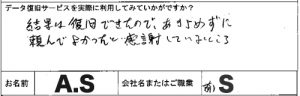 データ復旧サービスを実際に利用してみていかがですか？
結果は復旧できたので、あきらめずに
頼んでよかったと感謝しているところ
お名前 A.S 会社名またはご職業 S